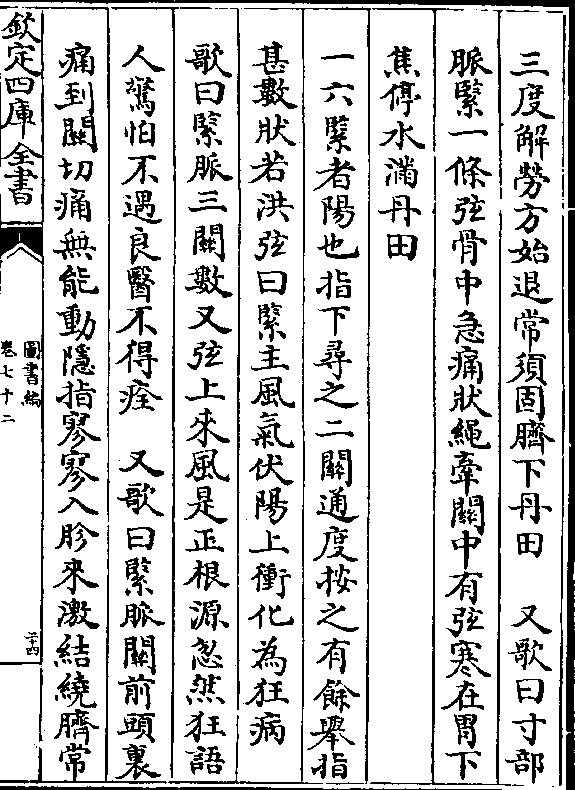 三度解勞方始退常須固臍下丹田　又歌曰寸部
脈緊一條弦骨中急痛狀繩牽關中有弦寒在胃下
焦停水滿丹田
一六緊者陽也指下尋之二關通度按之有餘舉指
甚數狀若洪弦曰緊主風氣伏陽上衝化為狂病
歌曰緊脈三關數又弦上來風是正根源忽然狂語
人驚怕不遇良醫不得痊　又歌曰緊脈關前頭裏
痛到關切痛無能動隱指寥寥入胗來激結繞臍常
欽定四庫全書
圖書編
卷七十二
二十四